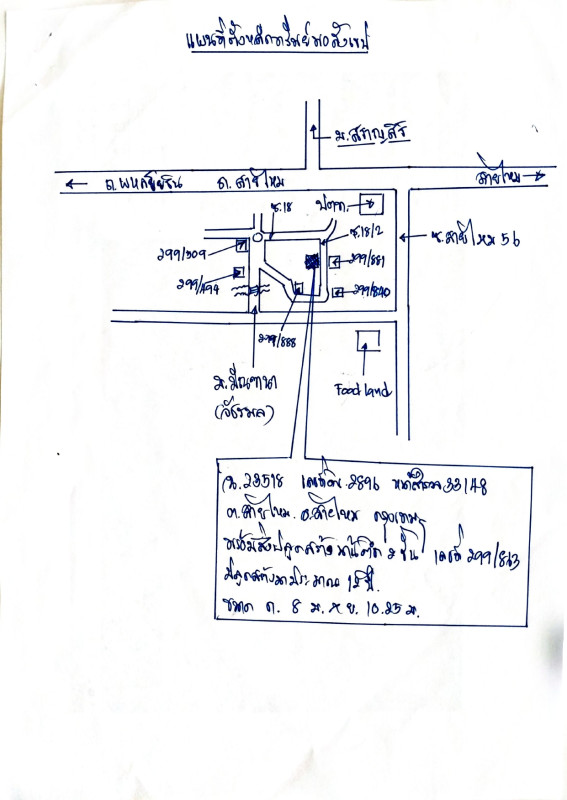 แผนที่ตั้งหลักทรัพย์พอสังเขป
ม.สราญสิริ
ถ.พหลโยธิน
ถ.สายไหม
สายไหม
ซ.18
ปตท.
ซ.18/2
ซ.สายไหม 56
299/309
299/881
299/494
299/840
299/888
ม.มัณฑนา
(วัชรพล)
Foodland
ฉ.23518 เลขที่ดิน 2896 หน้าสำรวจ 33148
ต.สายไหม อ.สายไหม กรุงเทพฯ
พร้อมสิ่งปลูกสร้าง บ้านตึก 2 ชั้น เลขที่ 299/863
ปลูกสร้างมาประมาณ 12 ปี.
ขนาด ก. 8 ม. x ย. 10.25 ม.